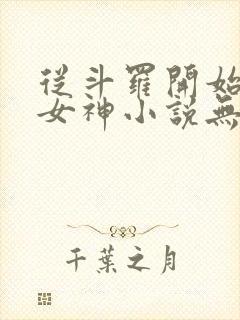 從斗羅開始
女神小說無
千葉之月